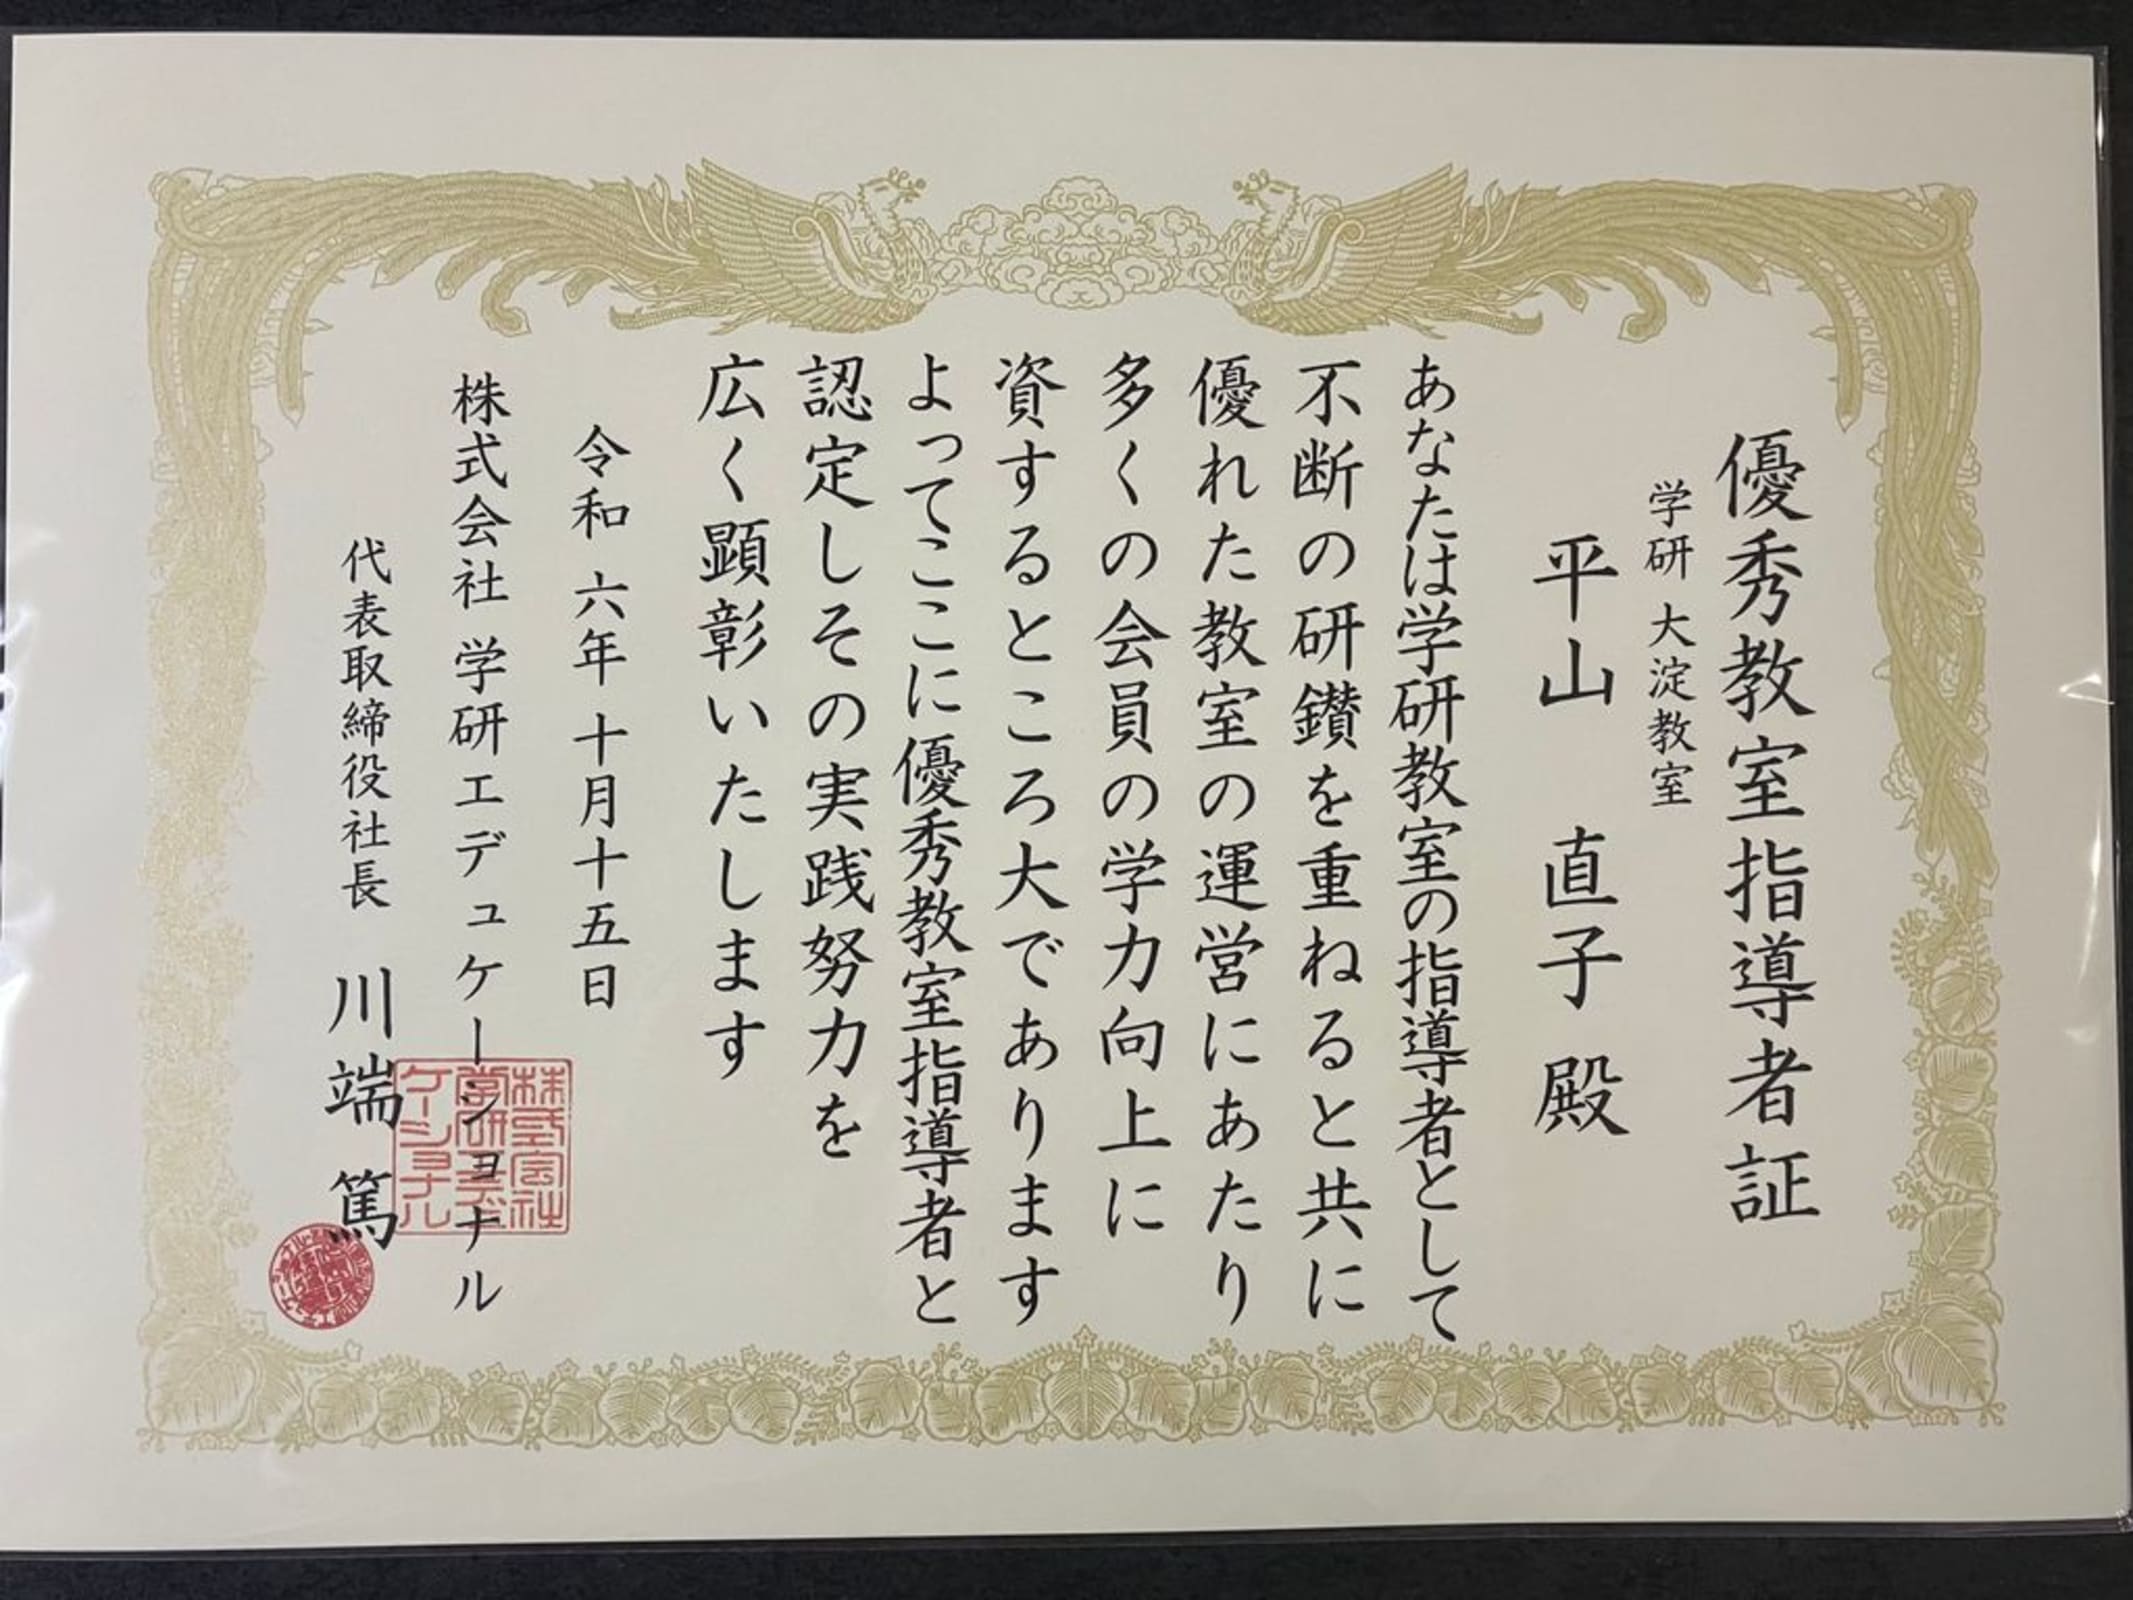 優秀教室指導者証
学研 大淀教室
平山 直子 殿
あなたは学研教室の指導者として
不断の研鑚を重ねると共に
優れた教室の運営にあたり
多くの会員の学力向上に
資するところ大であります
よってここに優秀教室指導者と
認定しその実践努力を
広く顕彰いたします
令和 六年 十月十五日
株式会社 学研エデュケーショナル
代表取締役社長 川端 篤
株式会社
学研エデュ
ケーショナル